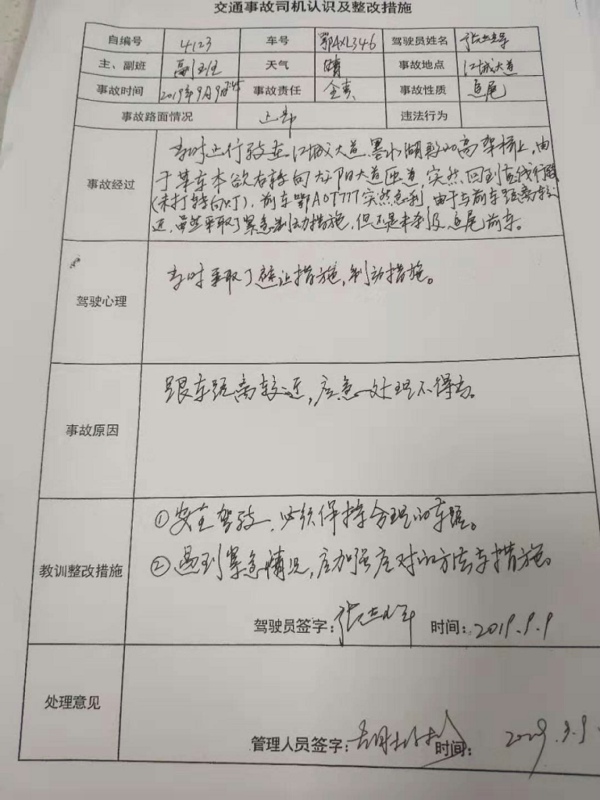 交通事故司机认识及整改措施
自编号 4123 车号 鄂AXL346 驾驶员姓名
主、副班 副班 天气 晴 事故地点 江城大道
事故时间 2019年9月9日 事故责任 全责 事故性质 追尾
事故路面情况 正常 违法行为
事故经过
当时正行驶在江城大道墨水湖 高架桥上,由
于某车本欲右转向太阳大道匝道,突然回到直线行驶
(未打转向灯),前车鄂A0T777突然急刹,由于与前车距离较
近,虽然采取了紧急制动措施,但还是未 及,追尾前车。
驾驶心理
当时采取了避让措施,制动措施。
事故原因
跟车距离较近,应急处理不得当。
教训整改措施
①安全驾驶,必须保持合理的车距。
②遇到紧急情况,应加强应对的方法与措施。
驾驶员签字: 时间:2019.9.9
处理意见
管理人员签字: 时间: